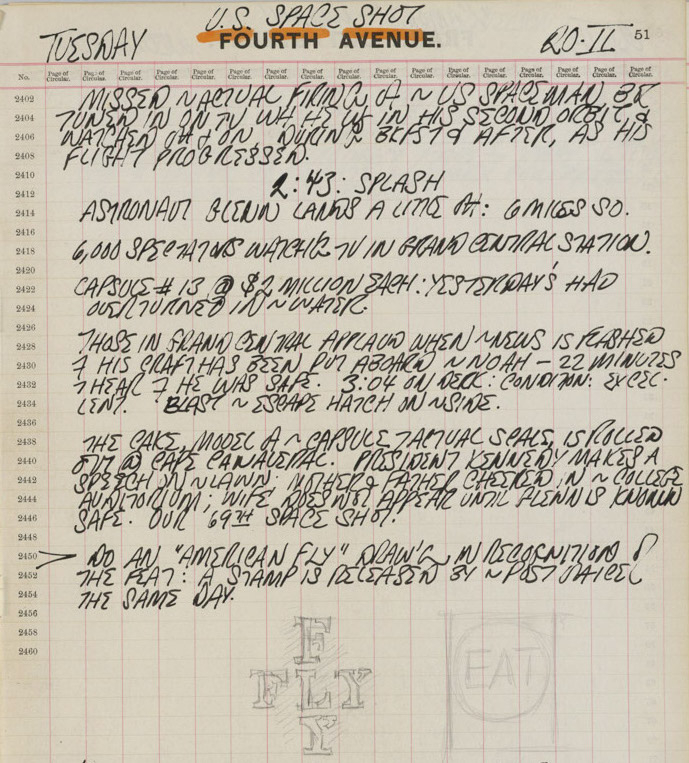 U.S. SPACE SHOT
TUESDAY FOURTH AVENUE. 20·II 51
No. Page of Circular. Page of Circular. Page of Circular. Page of Circular. Page of Circular. Page of Circular. Page of Circular. Page of Circular. Page of Circular. Page of Circular. Page of Circular. Page of Circular. Page of Circular. Page of Circular. Page of Circular. Page of Circular. Page of Circular.
2402 MISSED ~ ACTUAL FIRING OF ~ US SPACEMAN BUT
2404 TUNED IN ON TV WH HE WAS IN HIS SECOND ORBIT, &
2406 WATCHED OFF & ON DURING BKFST & AFTER, AS HIS
2408 FLIGHT PROGRESSED.
2410 2:43: SPLASH
2412
2414 ASTRONAUT GLENN LANDS A LITTLE OFF: 6 MILES SO.
2416
2418 6,000 SPECTATORS WATCH'G TV IN GRAND CENTRAL STATION.
2420
2422 CAPSULE #13 @ $2 MILLION EACH: YESTERDAY'S HAD
2424 OVERTURNED IN ~ WATER.
2426
2428 THOSE IN GRAND CENTRAL APPLAUD WHEN ~ NEWS IS FLASHED
2430 HIS CRAFT HAS BEEN PUT ABOARD ~ NOAH – 22 MINUTES
2432 HEAR HE WAS SAFE. 3:04 ON DECK: CONDITION: EXCEL-
2434 LENT. BLAST ~ ESCAPE HATCH ON ~ SIDE.
2436
2438 THE CAKE, MODEL OF ~ CAPSULE ACTUAL SCALE, IS ROLLED
2440 OUT @ CAPE CANAVERAL. PRESIDENT KENNEDY MAKES A
2442 SPEECH ON ~ LAWN: MOTHER & FATHER CHEERED IN ~ COLLEGE
2444 AUDITORIUM; WIFE DOES NOT APPEAR UNTIL GLENN IS KNOWN
2446 SAFE. OUR 69TH SPACE SHOT.
2448
2450 DO AN "AMERICAN FLY" DRAW'G IN RECOGNITION OF
2452 THE FEAT: A STAMP IS RELEASED BY ~ POST OFFICE
2454 THE SAME DAY.
2456
2458
2460
F
FLY
Y
EAT